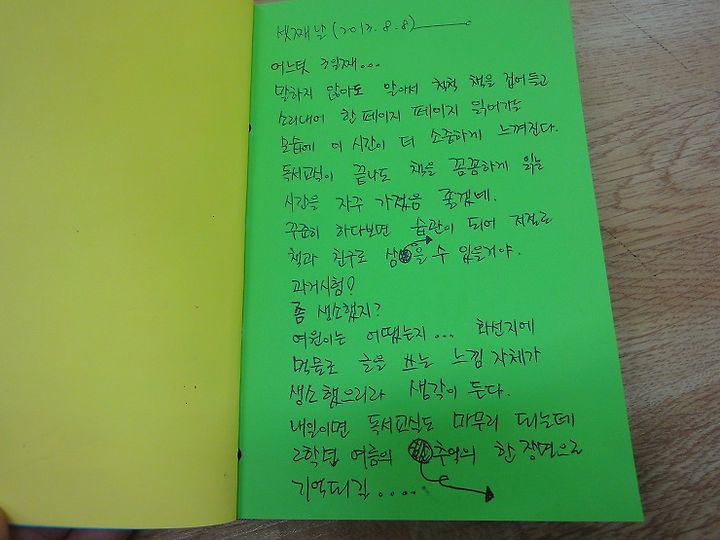 셋째날 (2013. 8. 8)
어느덧 3일째...
말하지 않아도 알아서 척척 책을 집어들고
소리내어 한 페이지 페이지 읽어가는
모습에 이 시간이 더 소중하게 느껴진다.
독서교실이 끝나도 책을 꼼꼼하게 읽는
시간을 자주 가졌음 좋겠네.
꾸준히 하다보면 습관이 되어 저절로
책과 친구로 삼을 수 있을거야.
과거시험?
좀 생소했지?
여원이는 어땠는지... 화선지에
먹물로 글을 쓰는 느낌 자체가
생소했으리라 생각이 든다.
내일이면 독서교실도 마무리 되는데
2학년 여름의 추억의 한 장면으로
기억되길.....